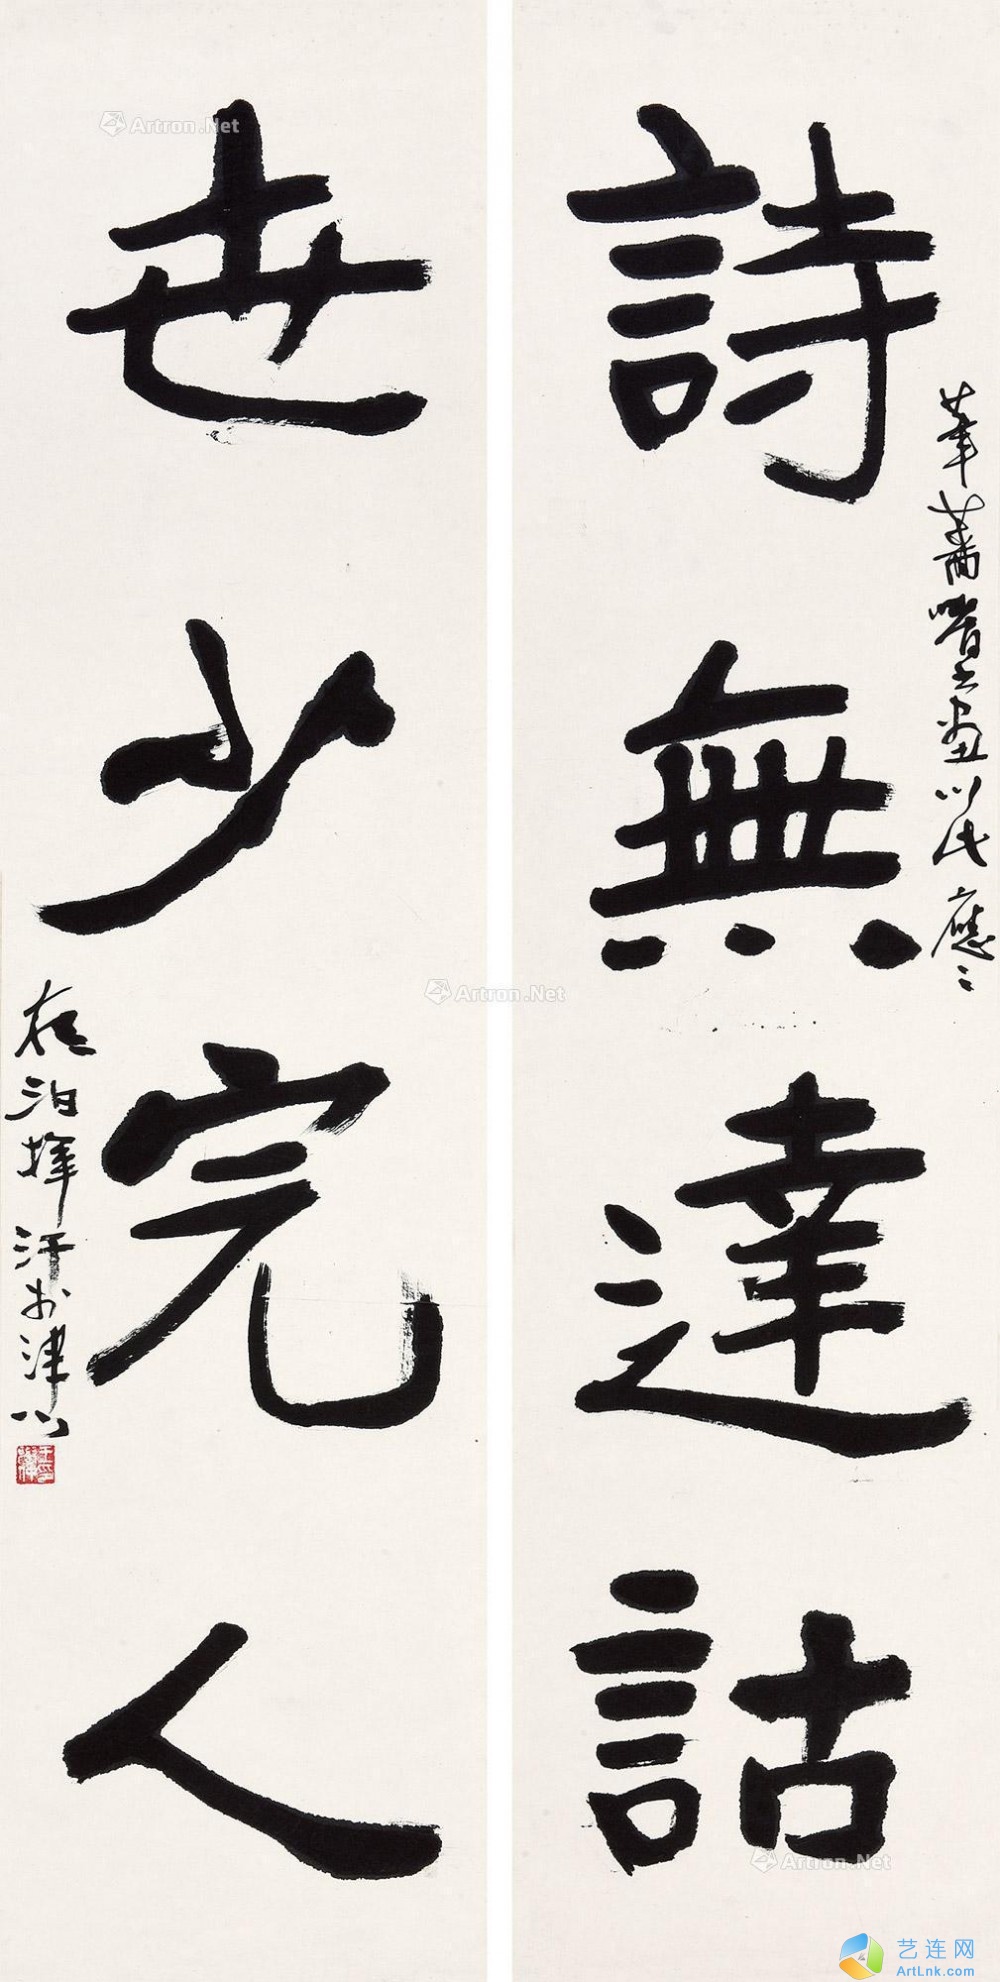 詩無達詁
華蕭嗜書畫以此應之
世少完人
在泊揮汗於津門
Artron.Net
Artron.Net
Artron.Net
艺连网
ArtLnk.com